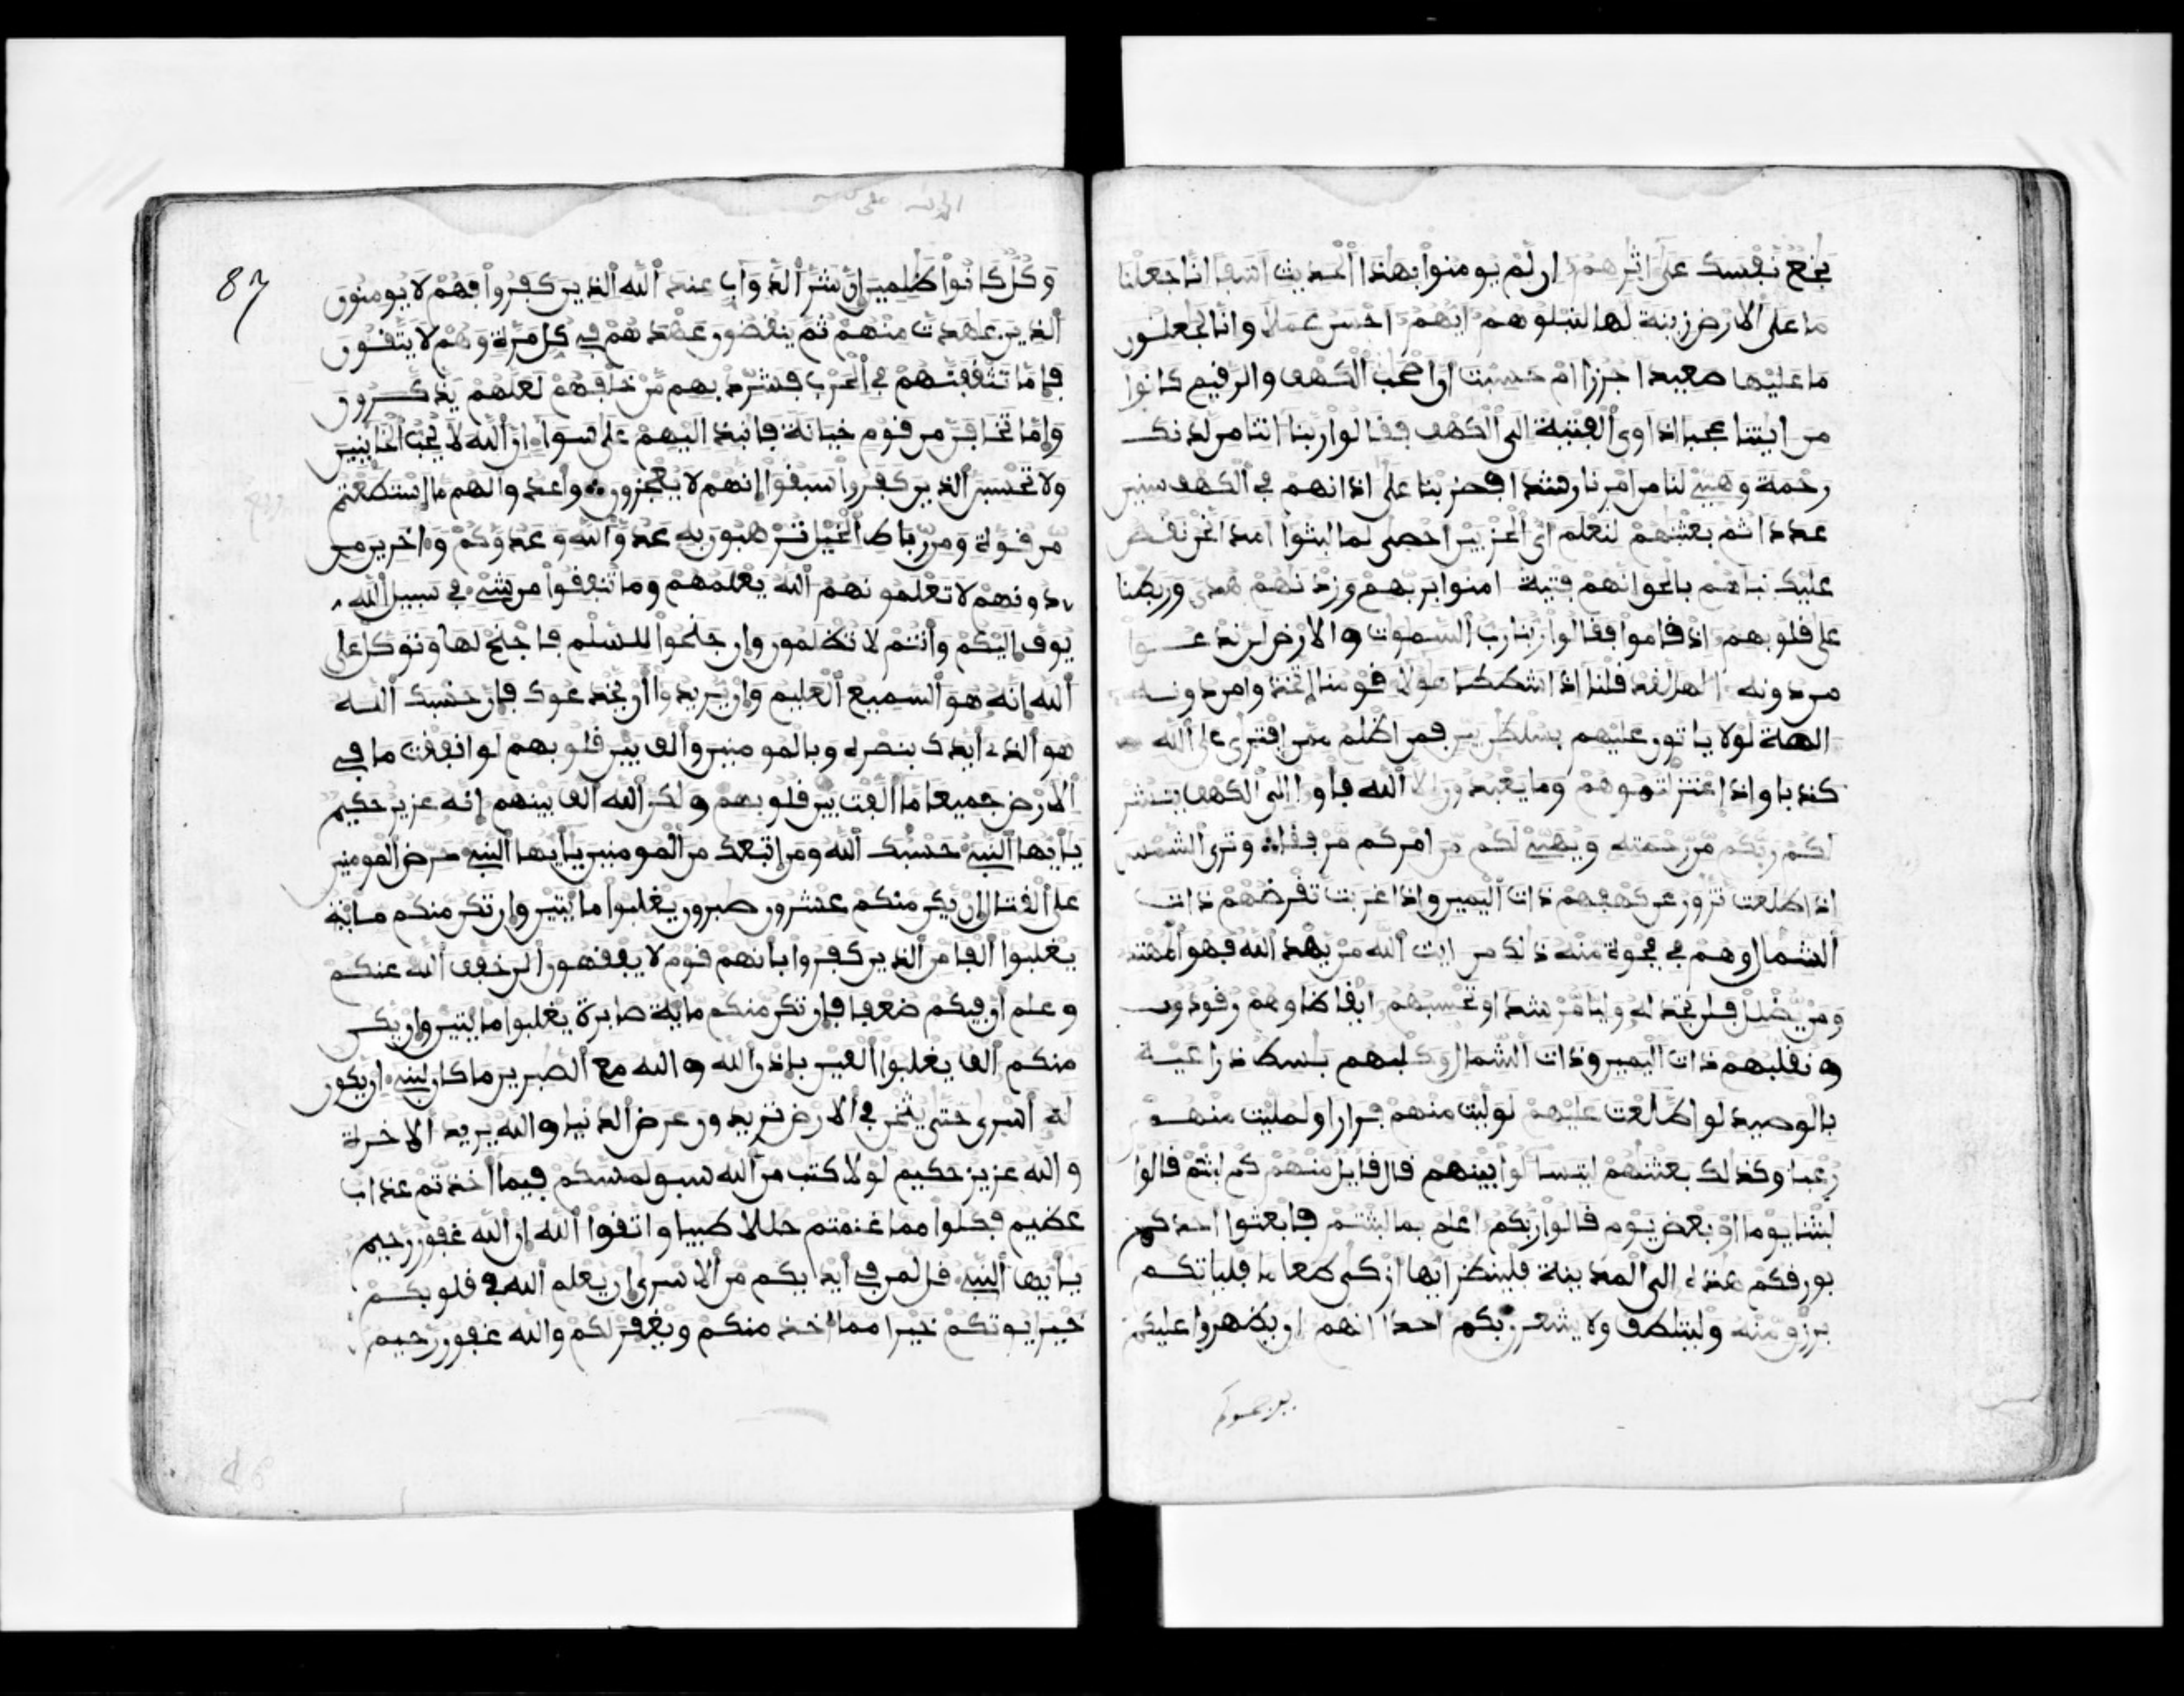 بخع نفسك على اثرهم ان لم يومنوا بهذا الحديث اسفا انا جعلنا
ما على الارض زينة لها لنبلوهم ايهم احسن عملا وانا لجعلون
ما عليها صعيدا جرزا ام حسبت ان اصحب الكهف والرقيم كانوا
من ايتنا عجبا اذ اوى الفتية الى الكهف فقالوا ربنا اتنا من لدنك
رحمة وهيئ لنا من امرنا رشدا فضربنا على اذانهم في الكهف سنين
عددا ثم بعثنهم لنعلم اي الحزبين احصى لما لبثوا امدا نحن نقص
عليك نباهم بالحق انهم فتية امنوا بربهم وزدنهم هدى وربطنا
على قلوبهم اذ قاموا فقالوا ربنا رب السموت والارض لن ندعوا
من دونه الها لقد قلنا اذا شططا هولا قومنا اتخذوا من دونه
الهة لولا ياتون عليهم بسلطن بين فمن اظلم ممن افترى على الله
كذبا واذ اعتزلتموهم وما يعبدون الا الله فاوا الى الكهف ينشر
لكم ربكم من رحمته ويهيئ لكم من امركم مرفقا وترى الشمس
اذا طلعت تزور عن كهفهم ذات اليمين واذا غربت تقرضهم ذات
الشمال وهم في فجوة منه ذلك من ايت الله من يهد الله فهو المهتد
ومن يضلل فلن تجد له وليا مرشدا وتحسبهم ايقاظا وهم رقود
ونقلبهم ذات اليمين وذات الشمال وكلبهم بسط ذراعيه
بالوصيد لو اطلعت عليهم لوليت منهم فرارا ولمليت منهم
رعبا وكذلك بعثنهم ليتسالوا بينهم قال قايل منهم كم لبثتم قالوا
لبثنا يوما او بعض يوم قالوا ربكم اعلم بما لبثتم فابعثوا احدكم
بورقكم هذه الى المدينة فلينظر ايها ازكى طعاما فلياتكم
برزق منه وليتلطف ولا يشعرن بكم احدا انهم ان يظهروا عليكم
يرجموكم
87
وكل كانوا ظلمين ان شر الدواب عند الله الذين كفروا فهم لا يومنون
الذين عهدت منهم ثم ينقضون عهدهم في كل مرة وهم لا يتقون
فاما تثقفنهم في الحرب فشرد بهم من خلفهم لعلهم يذكرون
واما تخافن من قوم خيانة فانبذ اليهم على سواء ان الله لا يحب الخاينين
ولا تحسبن الذين كفروا سبقوا انهم لا يعجزون واعدوا لهم ما استطعتم
من قوة ومن رباط الخيل ترهبون به عدو الله وعدوكم واخرين من
دونهم لا تعلمونهم الله يعلمهم وما تنفقوا من شيء في سبيل الله
يوف اليكم وانتم لا تظلمون وان جنحوا للسلم فاجنح لها وتوكل على
الله انه هو السميع العليم وان يريدوا ان يخدعوك فان حسبك الله
هو الذي ايدك بنصره وبالمومنين والف بين قلوبهم لو انفقت ما في
الارض جميعا ما الفت بين قلوبهم ولكن الله الف بينهم انه عزيز حكيم
يايها النبيء حسبك الله ومن اتبعك من المومنين يايها النبيء حرض المومنين
على القتال ان يكن منكم عشرون صبرون يغلبوا مايتين وان تكن منكم ماية
يغلبوا الفا من الذين كفروا بانهم قوم لا يفقهون الن خفف الله عنكم
وعلم ان فيكم ضعفا فان تكن منكم ماية صابرة يغلبوا مايتين وان يكن
منكم الف يغلبوا الفين باذن الله والله مع الصبرين ما كان لنبيء ان يكون
له اسرى حتى يثخن في الارض تريدون عرض الدنيا والله يريد الاخرة
والله عزيز حكيم لولا كتب من الله سبق لمسكم فيما اخذتم عذاب
عظيم فكلوا مما غنمتم حللا طيبا واتقوا الله ان الله غفور رحيم
يايها النبيء قل لمن في ايديكم من الاسرى ان يعلم الله في قلوبكم
خيرا يوتكم خيرا مما اخذ منكم ويغفر لكم والله غفور رحيم